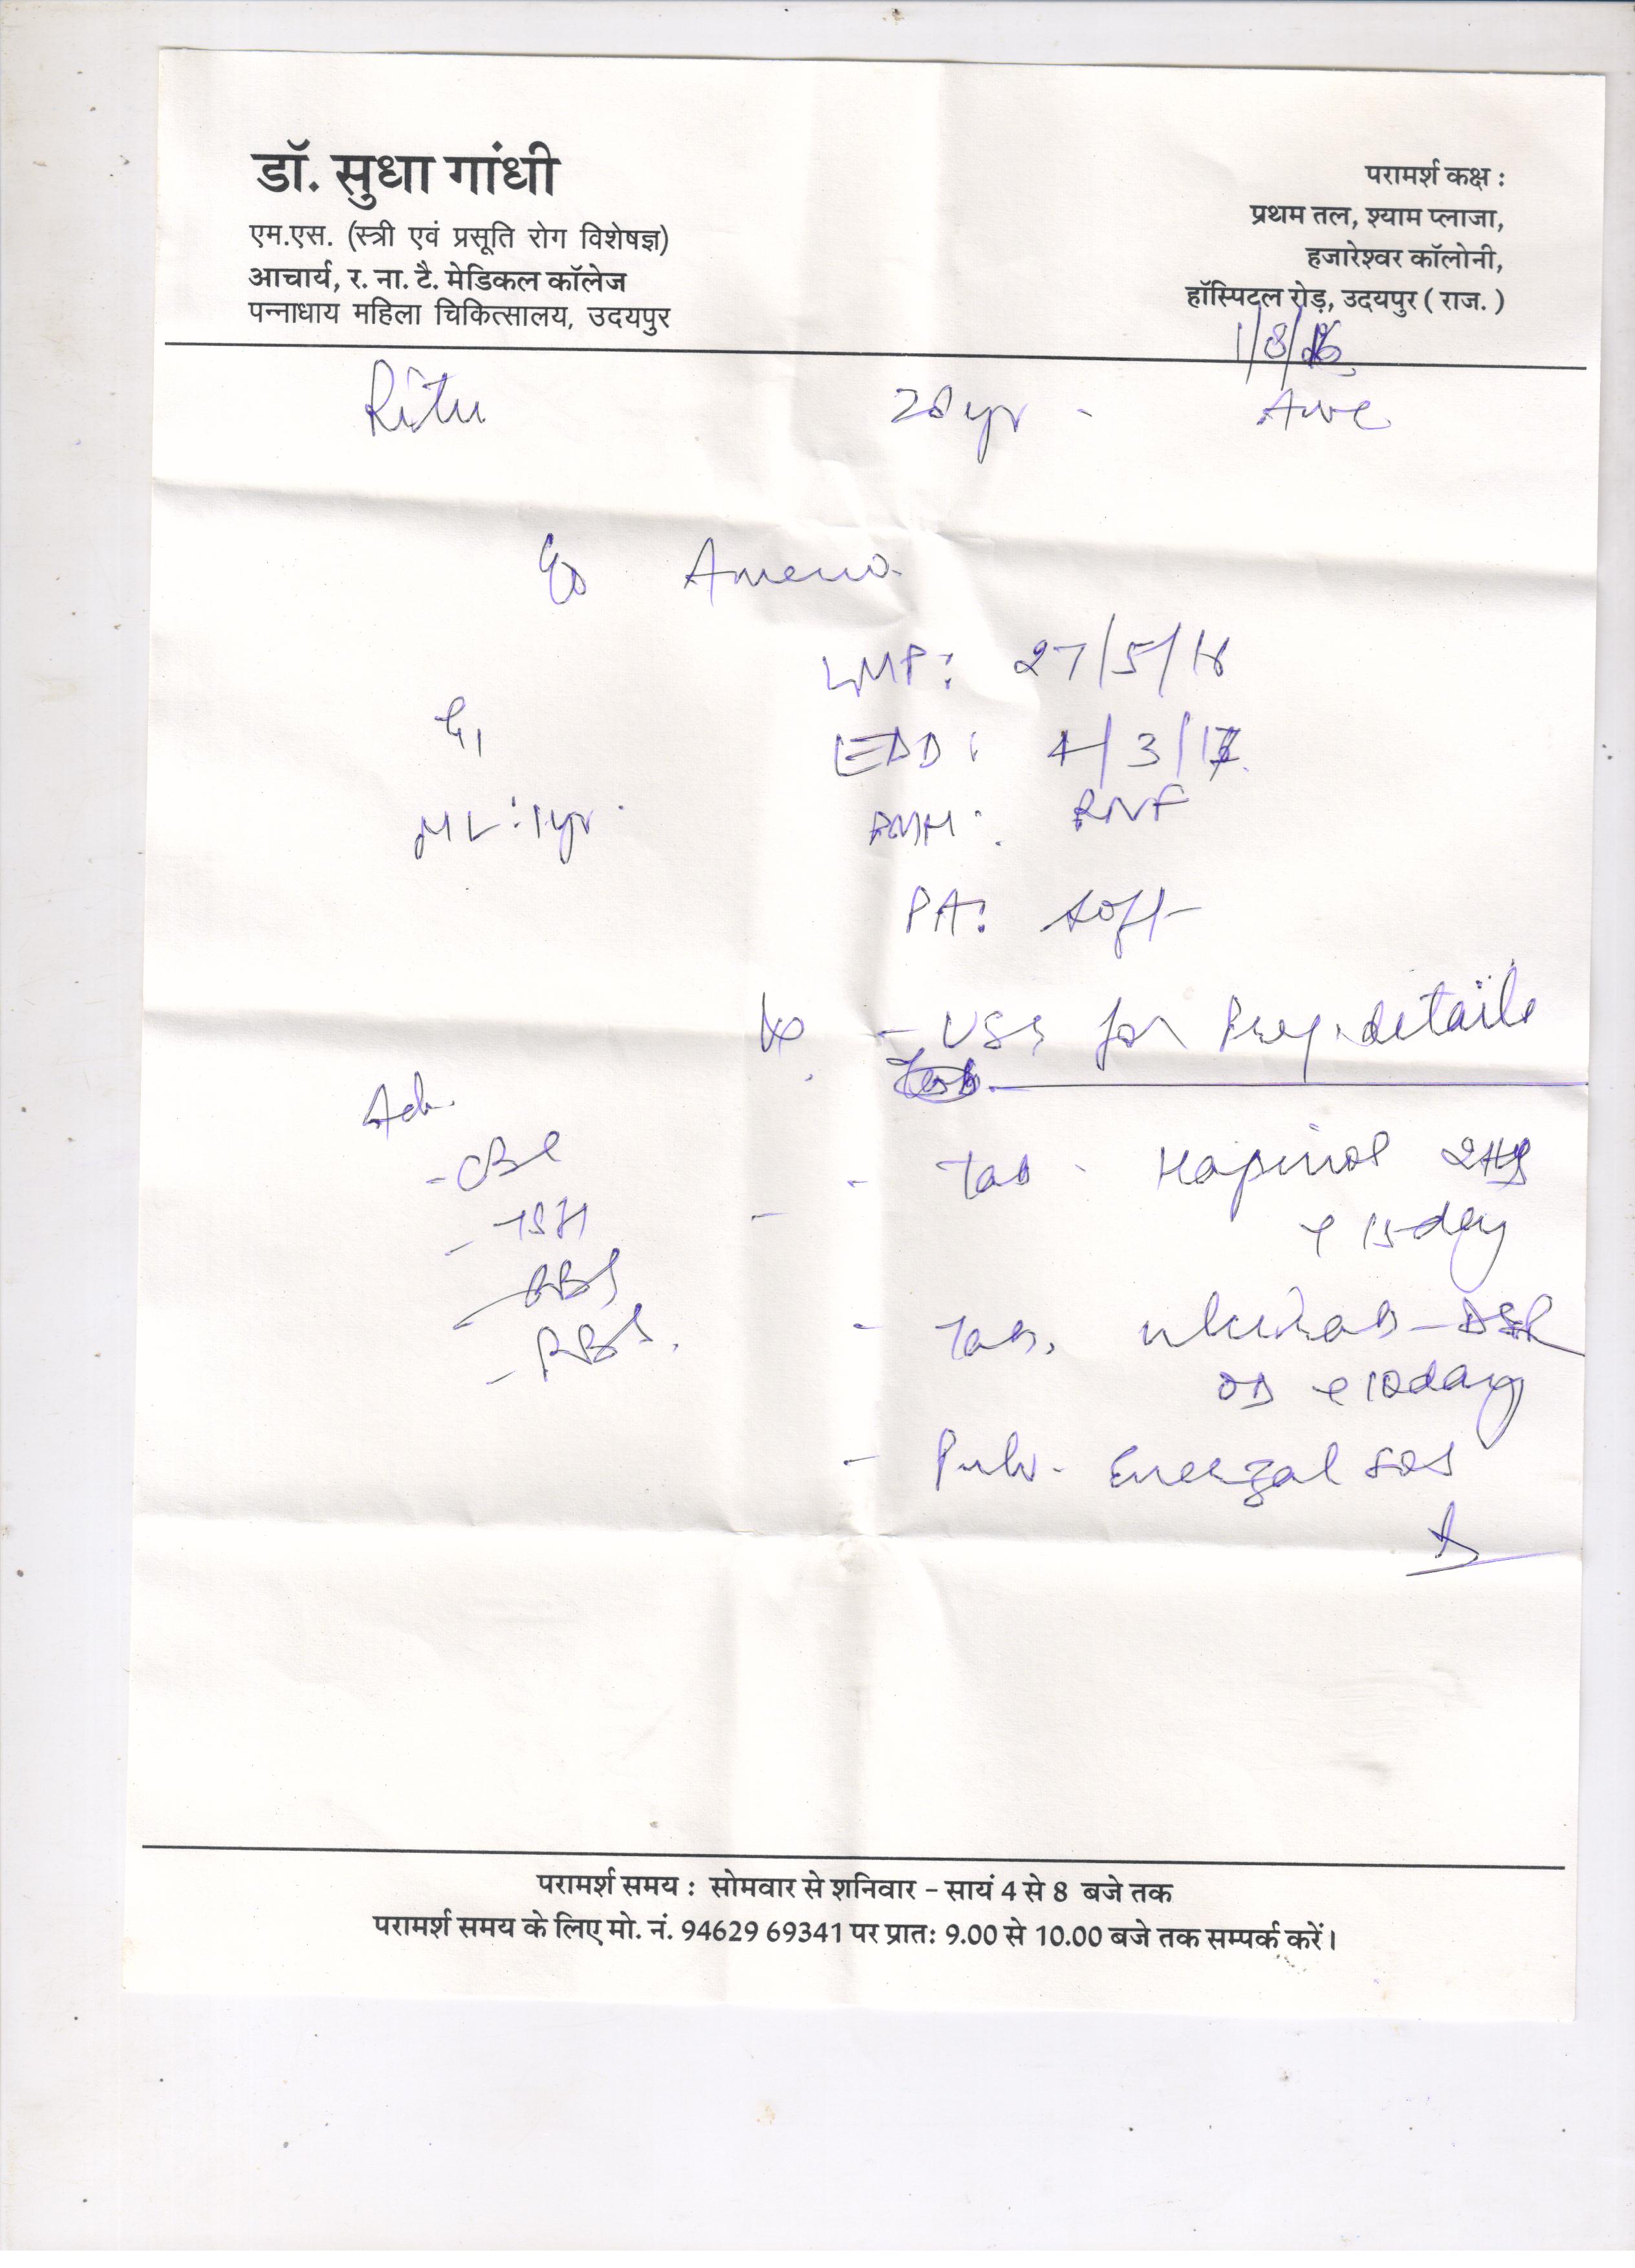 डॉ. सुधा गांधी
एम.एस. (स्त्री एवं प्रसूति रोग विशेषज्ञ)
आचार्य, र. ना. टै. मेडिकल कॉलेज
पन्नाधाय महिला चिकित्सालय, उदयपुर
परामर्श कक्ष :
प्रथम तल, श्याम प्लाजा,
हजारेश्वर कॉलोनी,
हॉस्पिटल रोड़, उदयपुर ( राज. )
1/8/16
Ritu 28 yr -
Ameno.
LMP: 27/5/16
G1
EDD: 4/3/17
ML: 1yr.
RNF
PA: soft
- USG for Preg. details
Adv.
- CBC
- TSH
- RBS
- Tab. 2HS
15 day
- Tab. -DSR
OD 10 day
- Pulv. Enerzal SOS
परामर्श समय : सोमवार से शनिवार - सायं 4 से 8 बजे तक
परामर्श समय के लिए मो. नं. 94629 69341 पर प्रातः 9.00 से 10.00 बजे तक सम्पर्क करें।